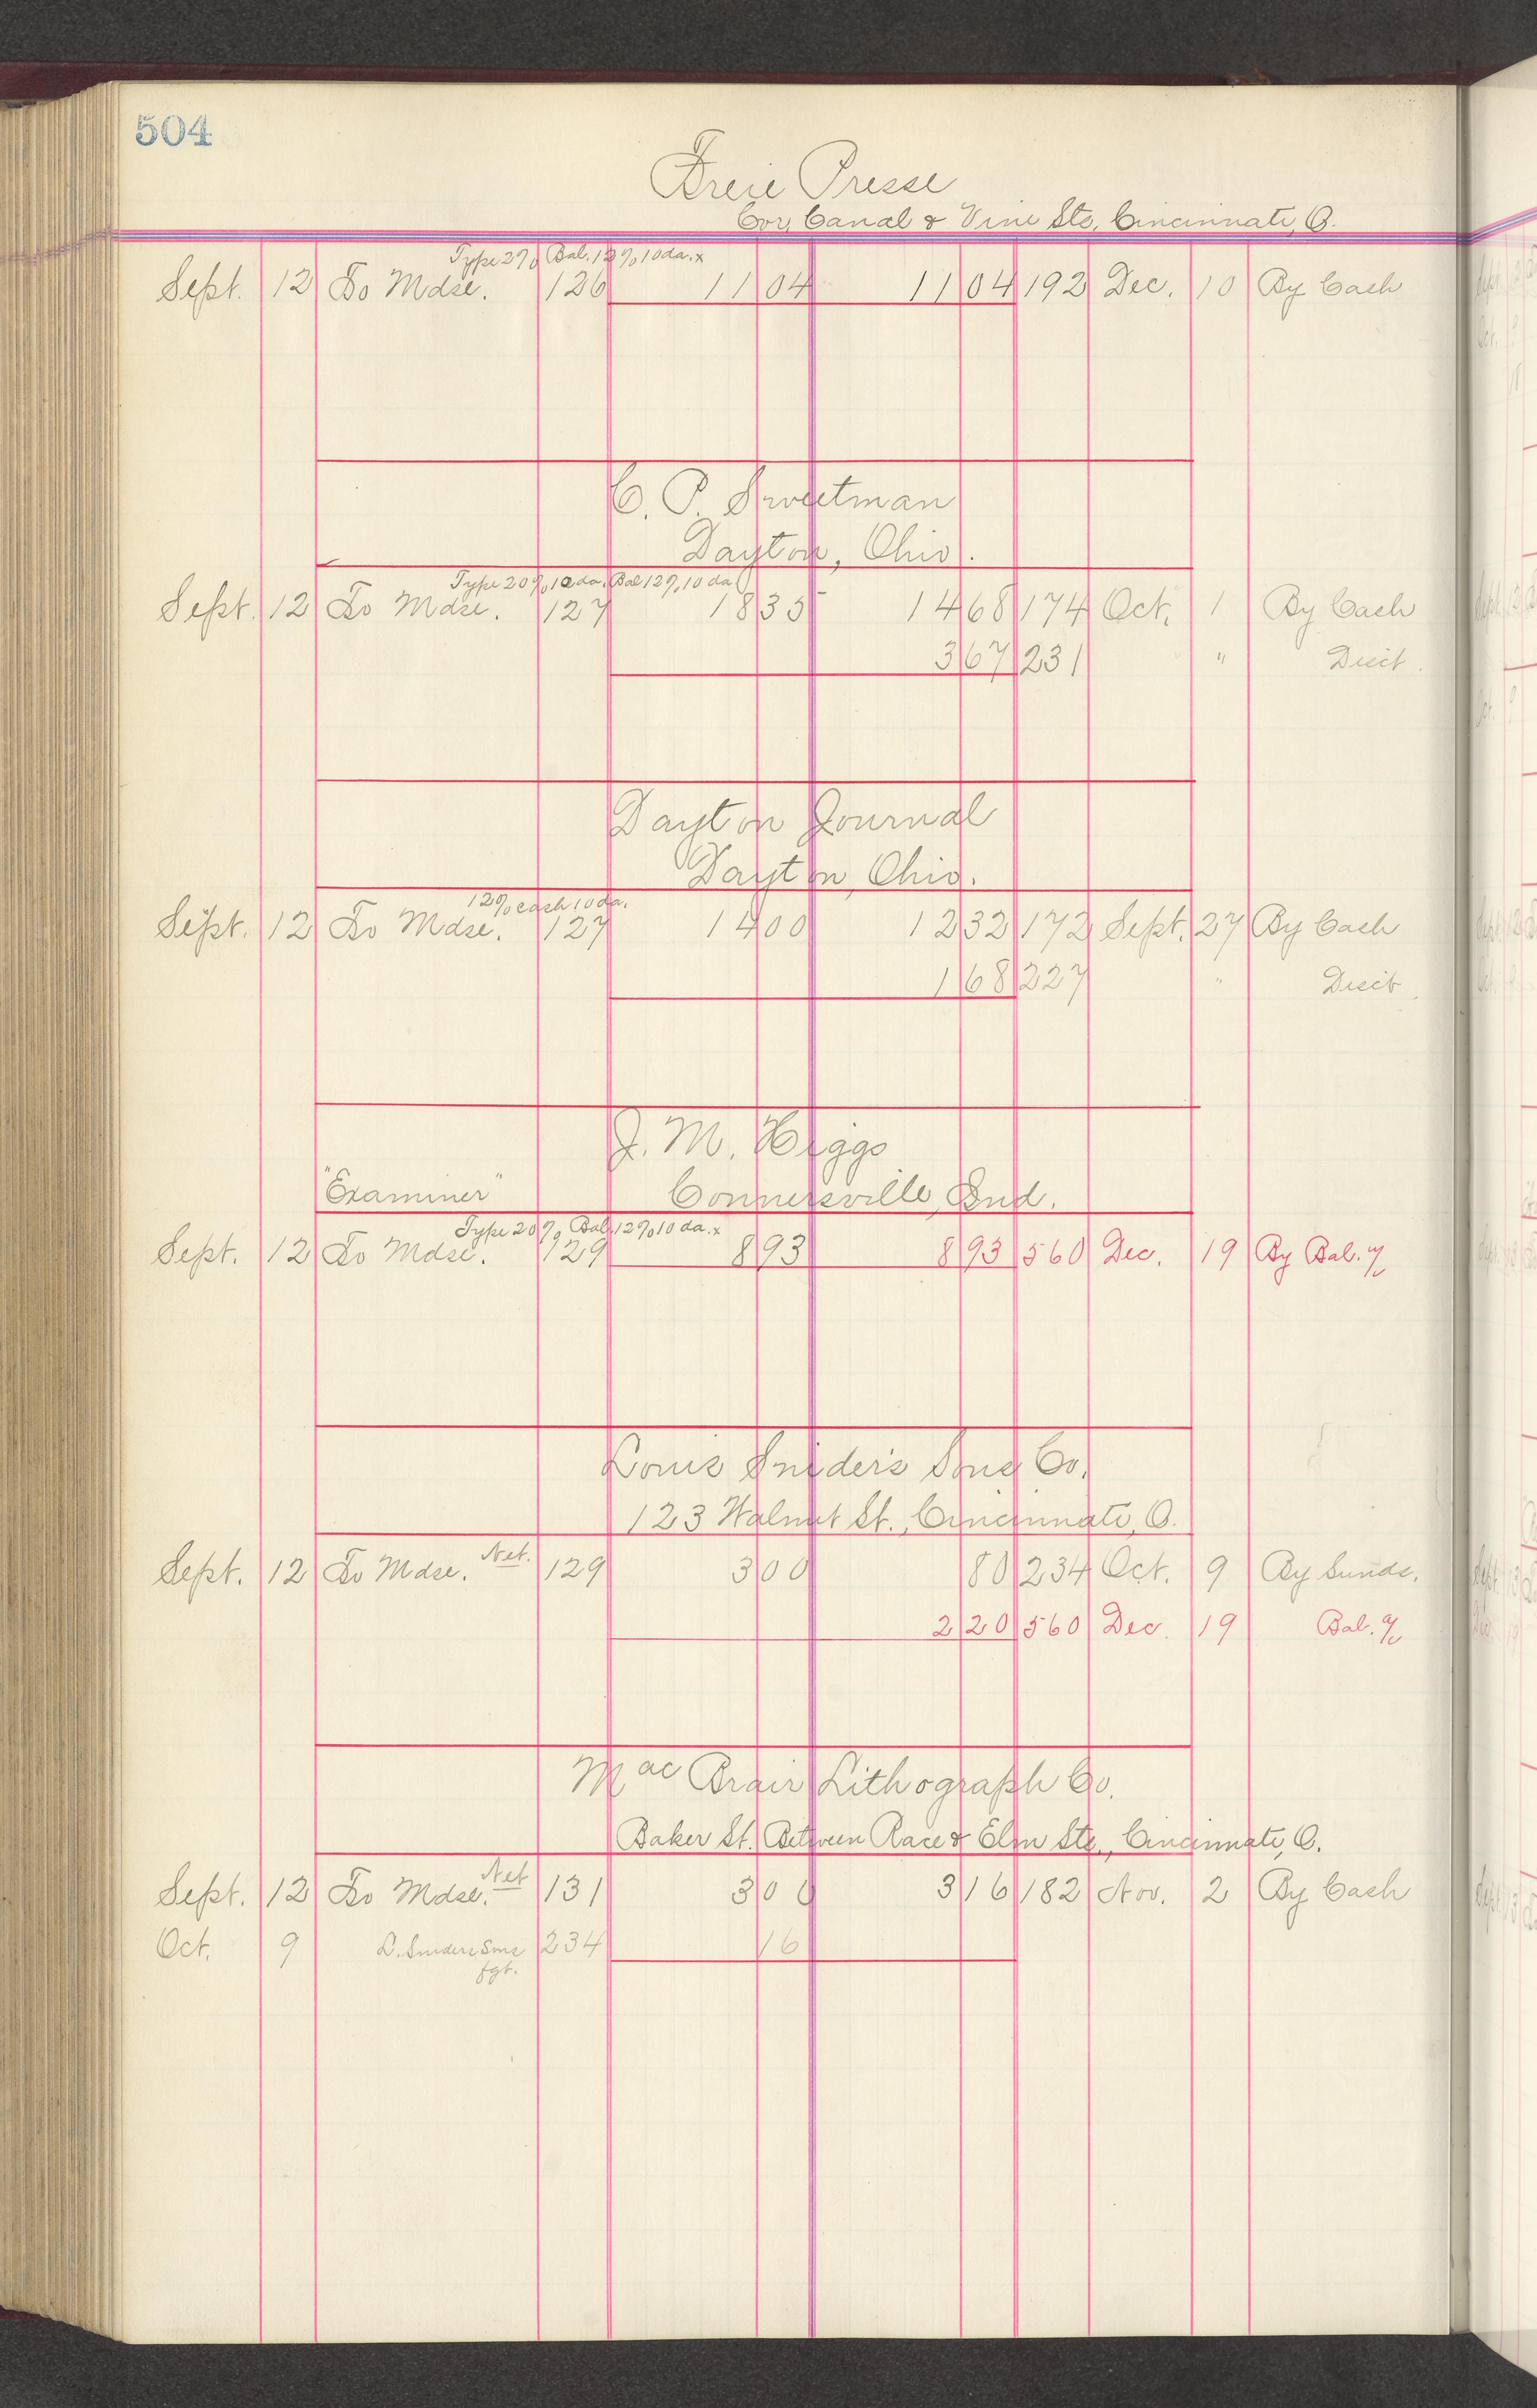 504
Freie Presse
Cor. Canal & Vine Sts, Cincinnati, O.
Type 2% Bal. 12% 10 da. x
Sept. 12 To Mdse. 126 11 04 11 04 192 Dec. 10 By Cash
C. P. Sweetman
Dayton, Ohio.
Type 20% 10 da. Bal 12% 10 da
Sept. 12 To Mdse. 127 18 35 14 68 174 Oct. 1 By Cash
3 67 231 " Disct.
Dayton Journal
Dayton, Ohio.
12% cash 10 da.
Sept. 12 To Mdse. 127 14 00 12 32 172 Sept. 27 By Cash
1 68 227 " Disct.
J. M. Higgs
"Examiner" Connersville, Ind.
Type 20% Bal. 12% 10 da. x
Sept. 12 To Mdse. 129 8 93 8 93 560 Dec. 19 By Bal. a/c
Louis Snider's Sons Co.
123 Walnut St., Cincinnati, O.
Sept. 12 To Mdse. Net. 129 3 00 80 234 Oct. 9 By Sunds.
2 20 560 Dec. 19 Bal. a/c
Mac Brair Lithograph Co.
Baker St. Between Race & Elm Sts., Cincinnati, O.
Sept. 12 To Mdse. Net 131 3 00 3 16 182 Nov. 2 By Cash
Oct. 9 L. Sniders Sons 234 16
fgt.